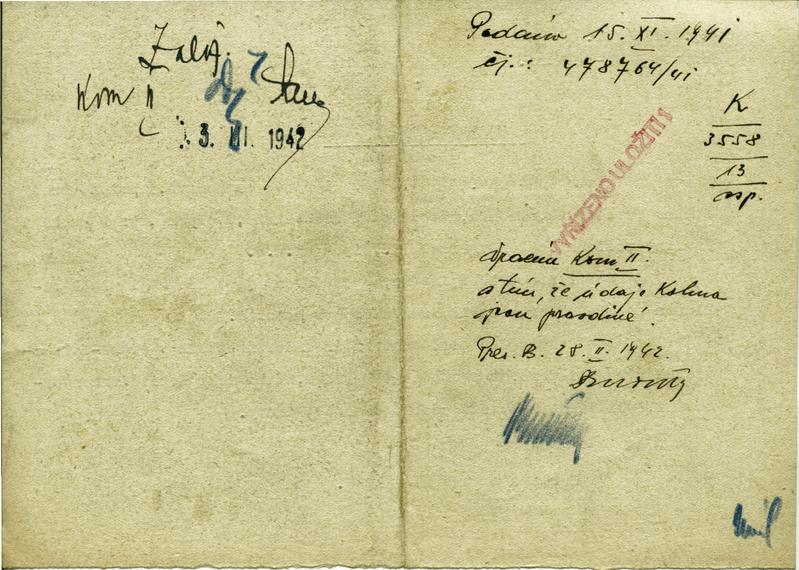 Založ.
Kom II
3. III. 1942
Podáno 15. XI. 1941
čj.: 478764/41
K
3558
13
VYŘÍZENO ULOŽITI!
Kom II.
s tím, že údaje Kohna
jsou pravdivé.
Pres. B. 28. II. 1942.